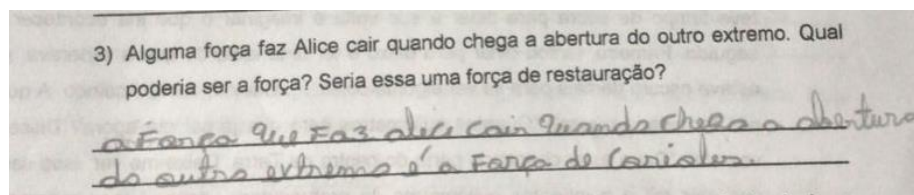 3) Alguma força faz Alice cair quando chega a abertura do outro extremo. Qual
poderia ser a força? Seria essa uma força de restauração?
a Força que Faz alice cair quando chega a abertura
do outro extremo é a Força de Corioles.